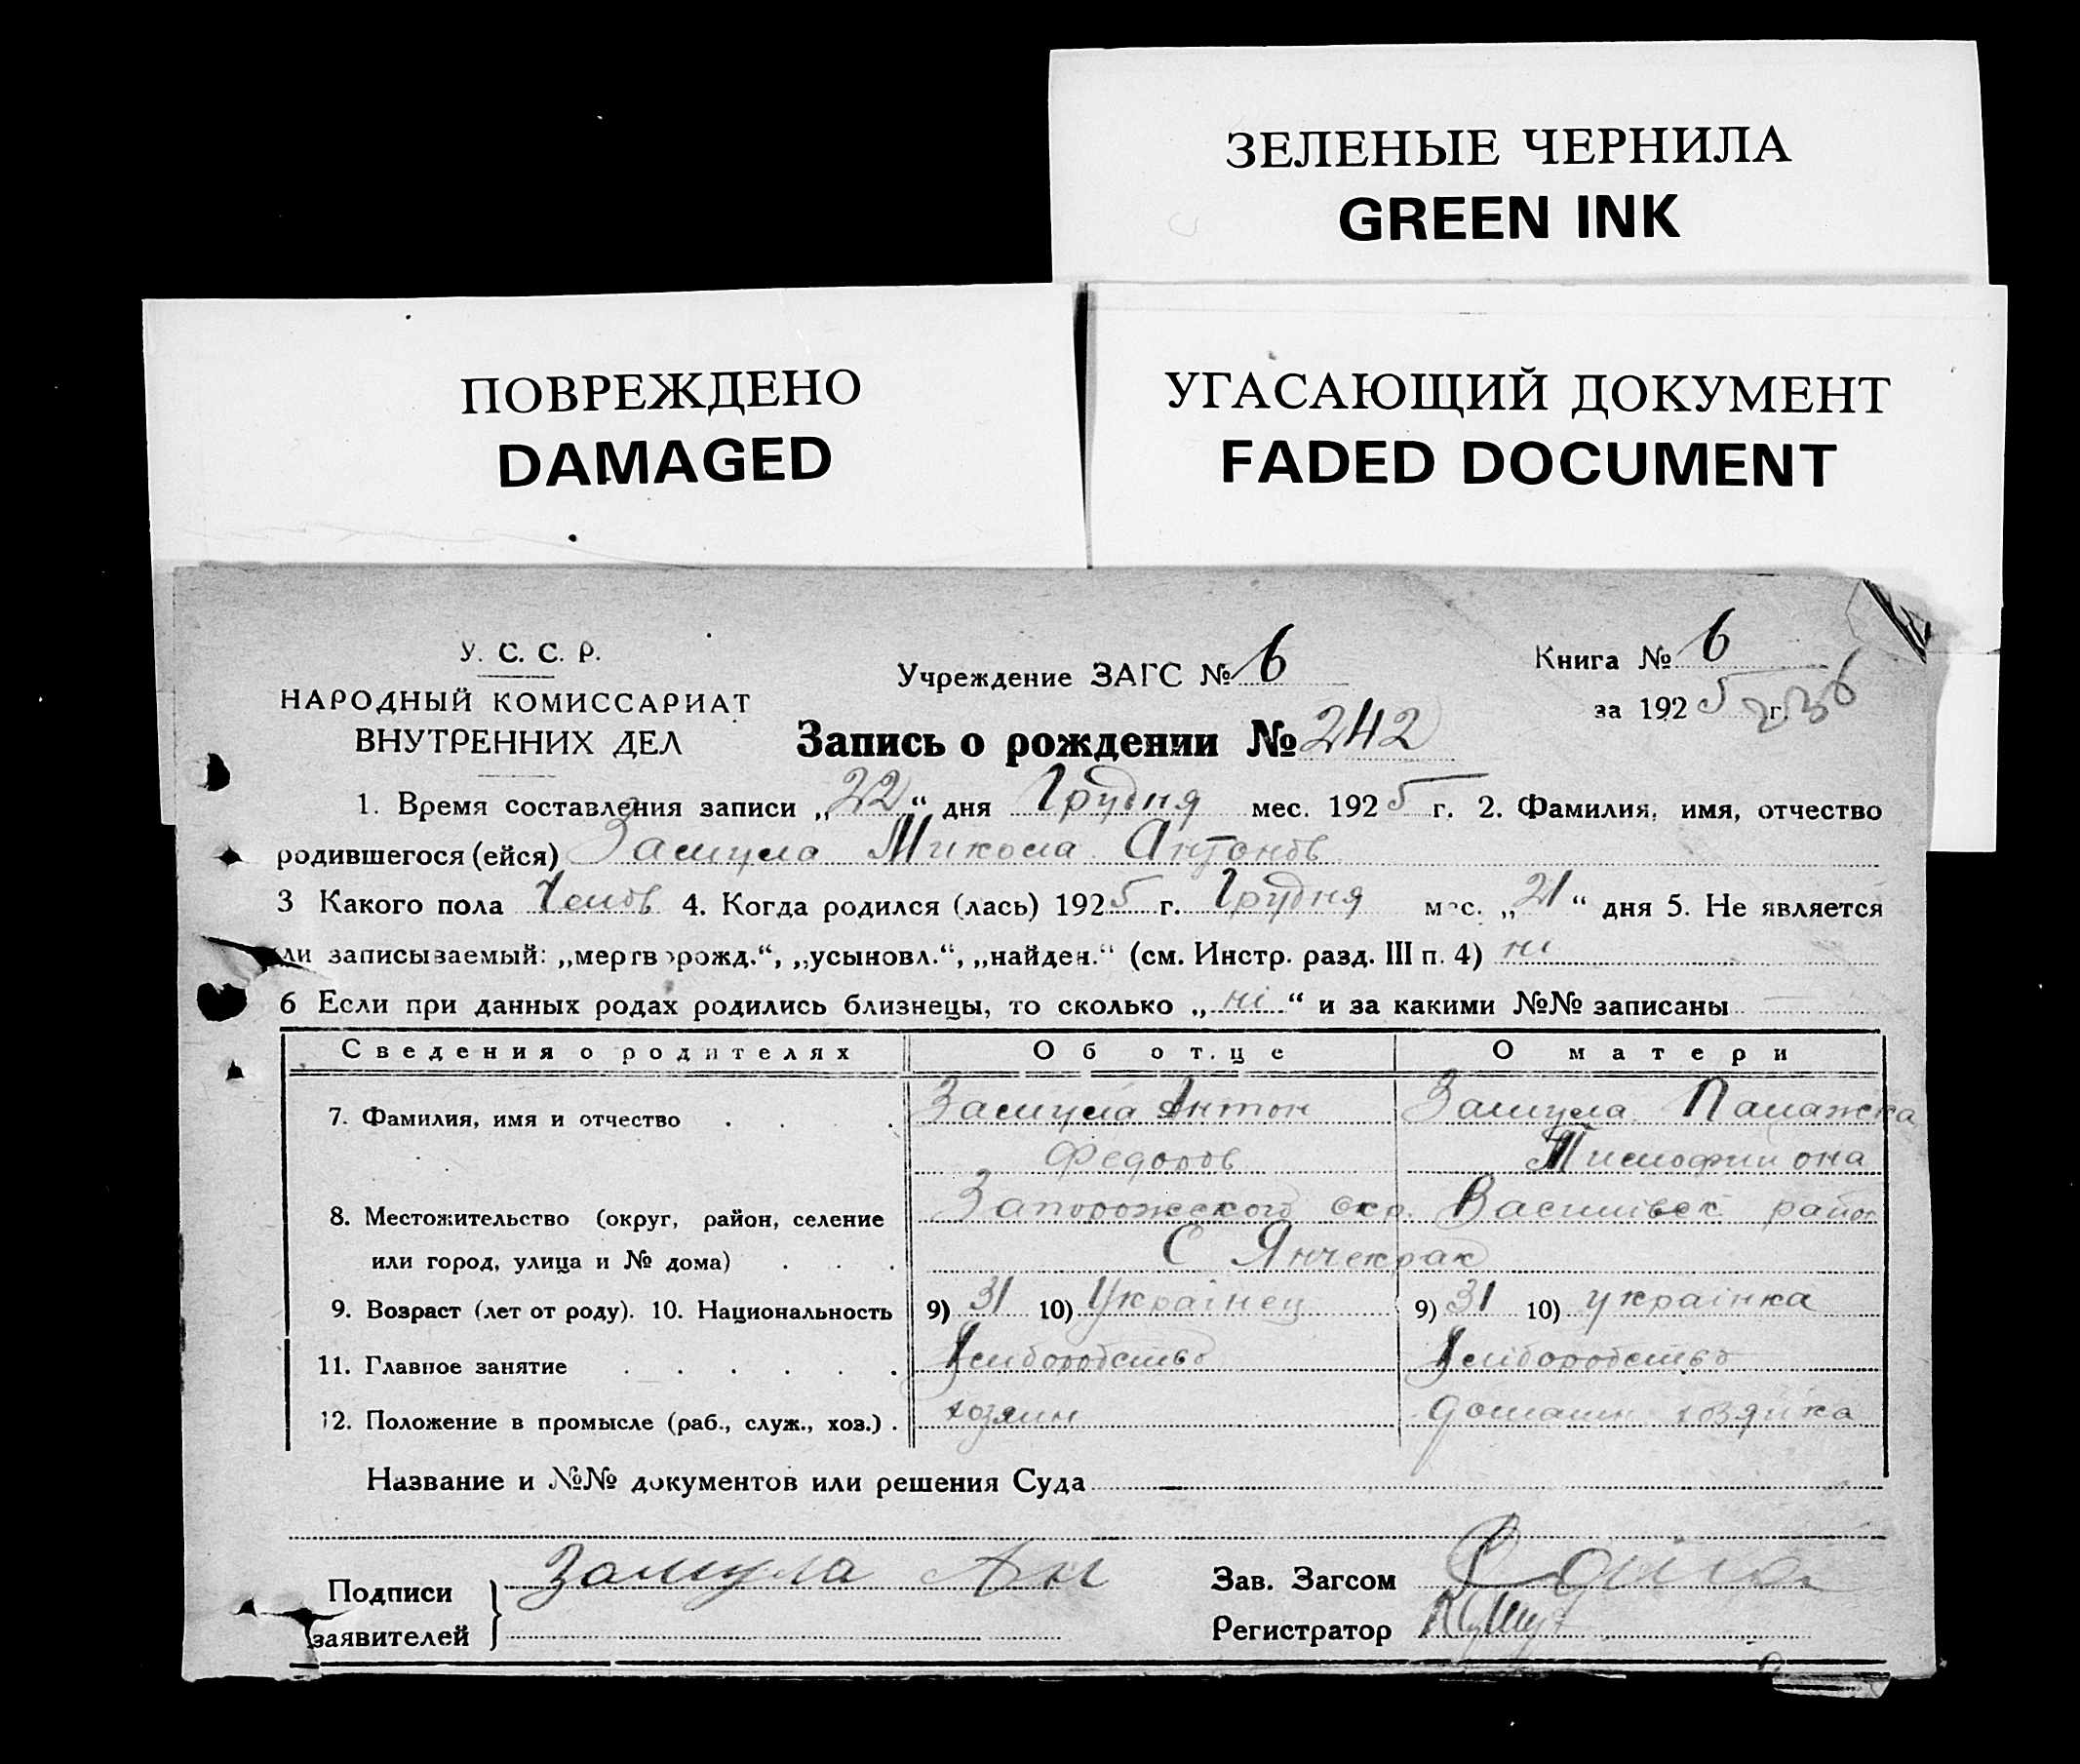 ЗЕЛЕНЫЕ ЧЕРНИЛА
GREEN INK
ПОВРЕЖДЕНО
DAMAGED
УГАСАЮЩИЙ ДОКУМЕНТ
FADED DOCUMENT
У. С. С. Р.
НАРОДНЫЙ КОМИССАРИАТ
ВНУТРЕННИХ ДЕЛ
Учреждение ЗАГС № 6
Книга № 6
за 1925 г. 236
Запись о рождении № 242
1. Время составления записи „22“ дня Грудня мес. 1925 г. 2. Фамилия, имя, отчество
родившегося (ейся) Замула Микола Антонов
3 Какого пола Чолов 4. Когда родился (лась) 1925 г. Грудня мес. „21“ дня 5. Не является
ли записываемый: „мертворожд.“, „усыновл.“, „найден.“ (см. Инстр. разд. III п. 4) ні
6 Если при данных родах родились близнецы, то сколько „ні“ и за какими №№ записаны
Сведения о родителях Об отце О матери
7. Фамилия, имя и отчество Замула Антон Замула Палажка
Федоров
8. Местожительство (округ, район, селение Запорожского окр. Василівск район
или город, улица и № дома) С Янчекрак
9. Возраст (лет от роду). 10. Национальность 9) 31 10) Українец 9) 31 10) українка
11. Главное занятие
12. Положение в промысле (раб., служ., хоз.) хозяин домашн хозяйка
Название и №№ документов или решения Суда
Подписи Замула Ан Зав. Загсом
заявителей Регистратор